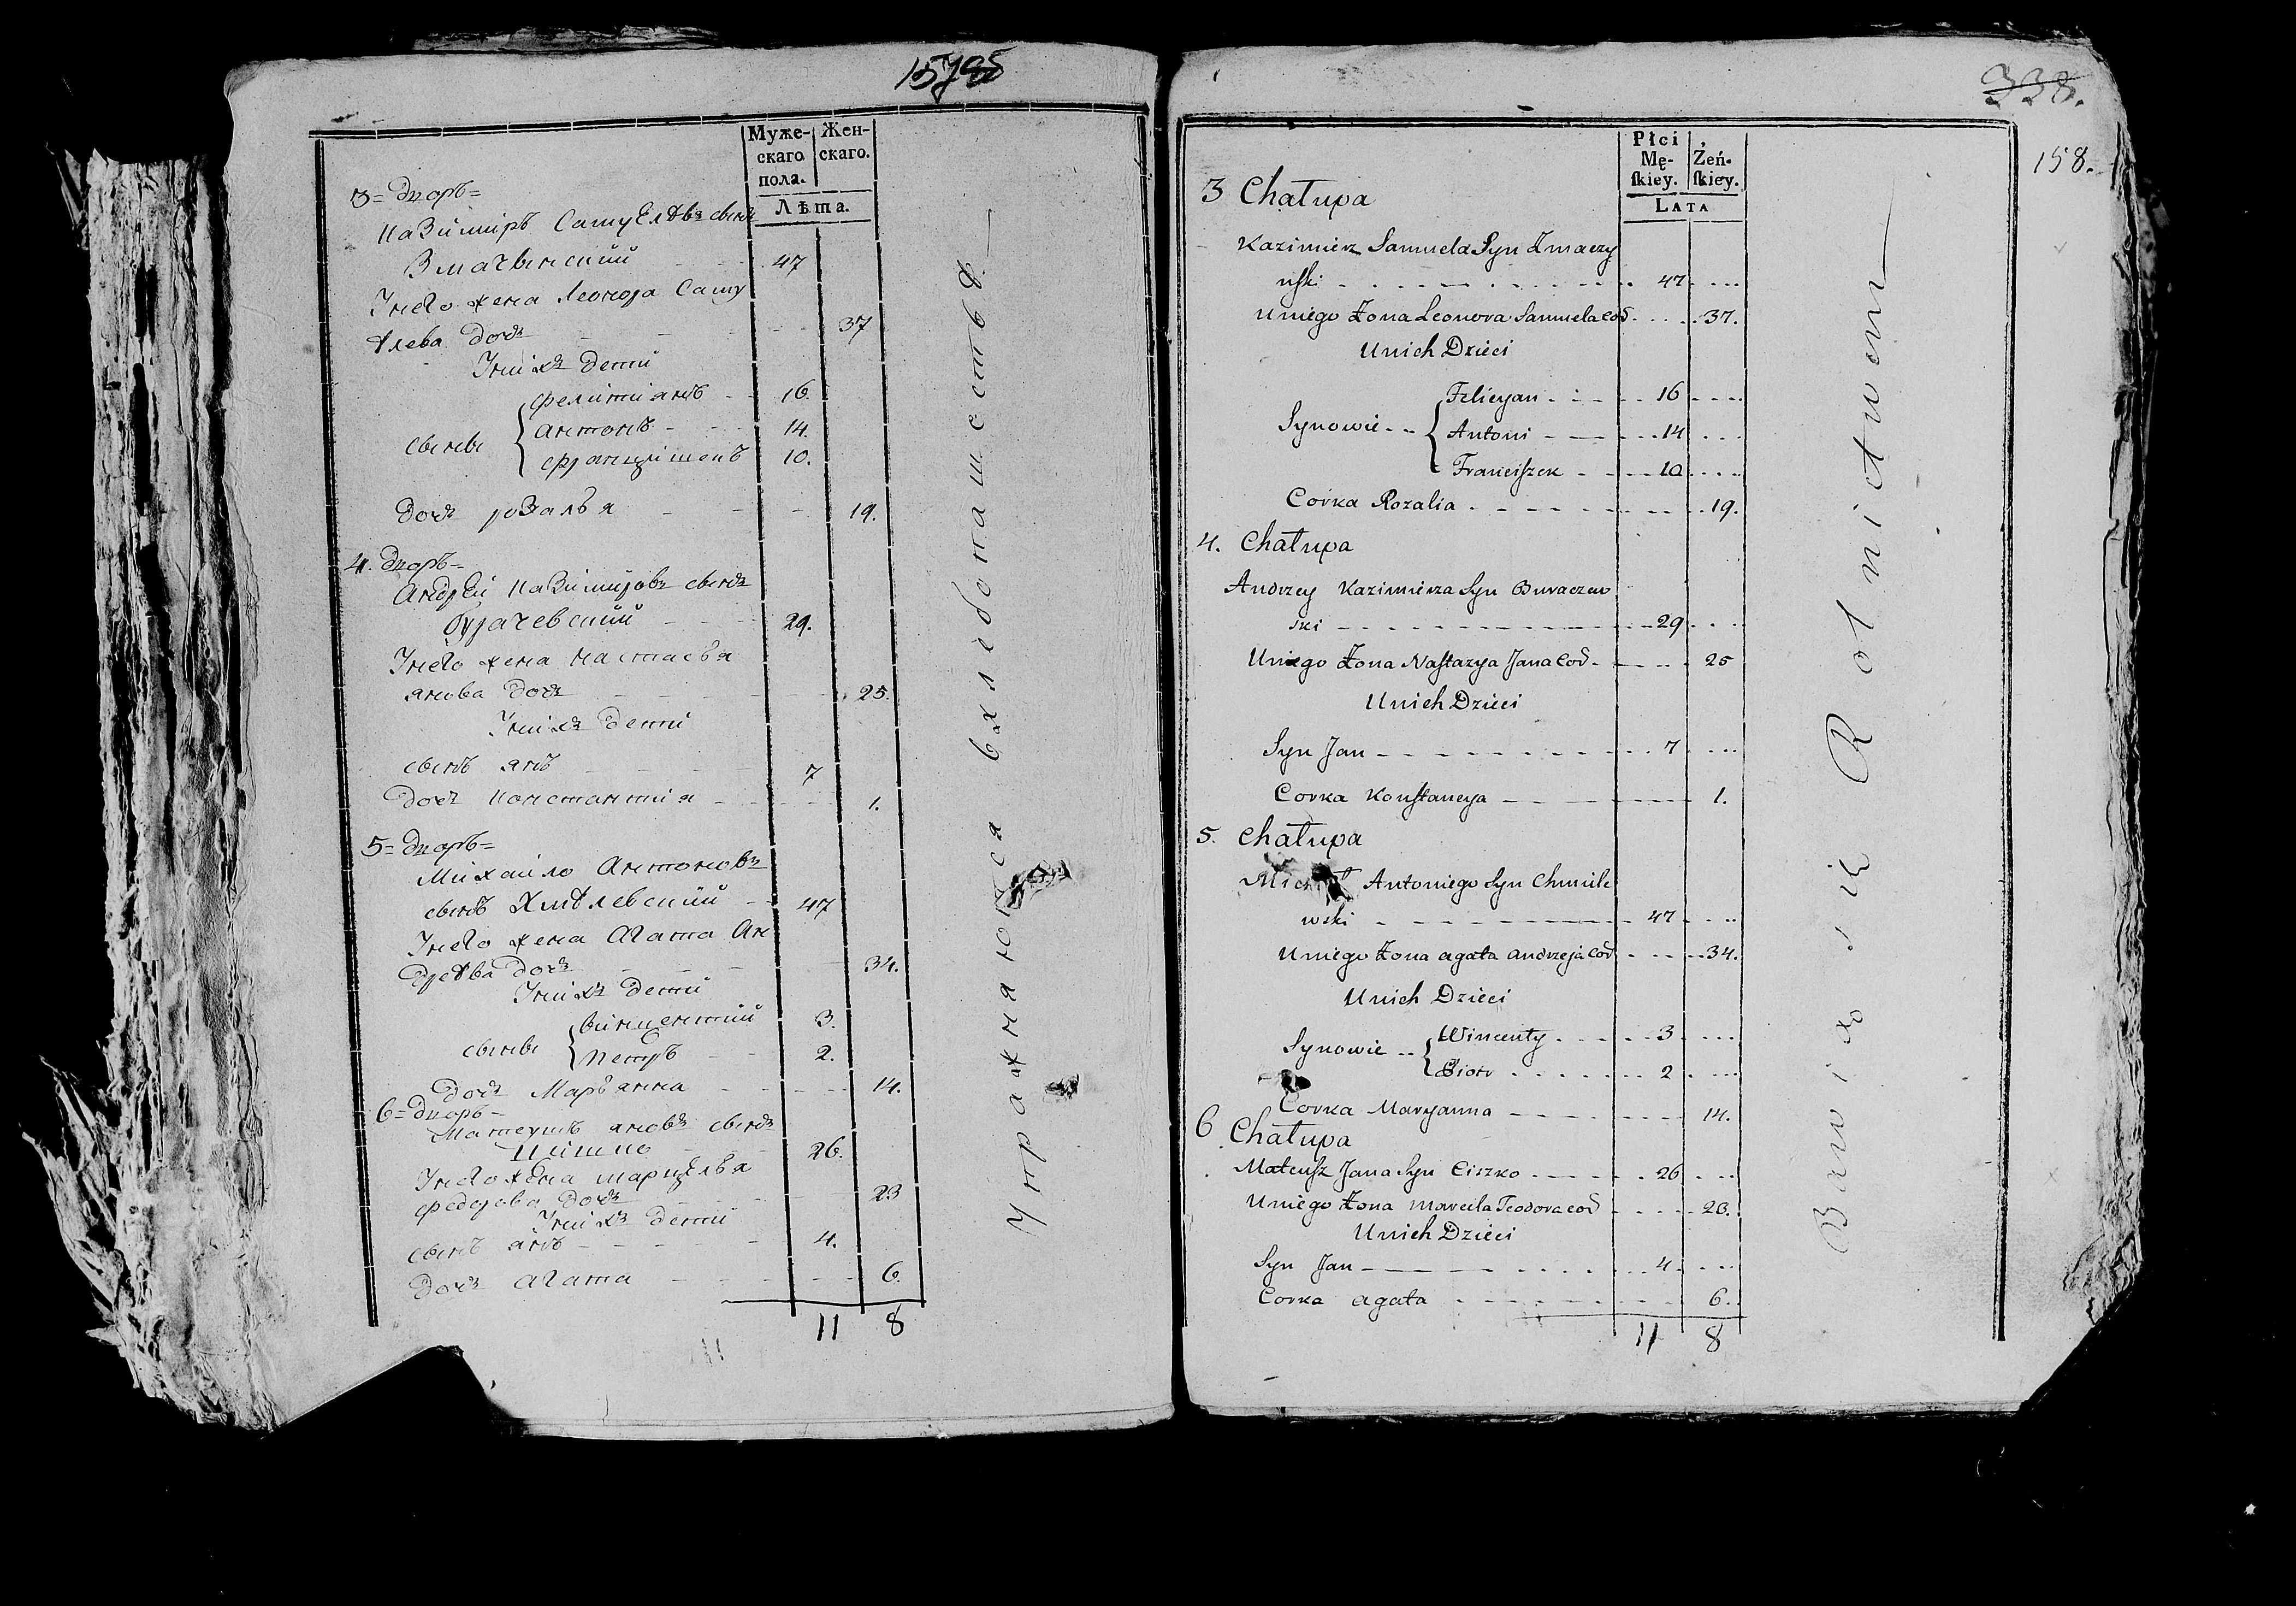 Муже-
скаго
пола.
Жен-
скаго.
Лѣта.
3= дворъ=
Казимиръ Самуелѣвъ сынъ
Змачынский 47
Унего жена Леонора Саму
ѣлева дочь 37
Унихъ дети
сыны
фелитиянъ 16.
антонъ 14.
францишекъ 10.
дочь розалъя 19.
4. дворъ=
андрей казимировъ сынъ
бурачевский 29.
Унего жена настасъя
янова дочь 25.
Унихъ дети
сынъ янъ 7
дочь константия 1.
5= дворъ=
Михайло антоновъ
сынъ Хмѣлевский 47
Унего жена агата Ан
дрѣева дочь 34.
Унихъ дети
сыны
винцентий 3.
петръ 2.
дочь Маръянна 14.
6= дворъ=
Матеушъ яновъ сынъ
26.
Унего жена марцѣлъя
федорова дочь 23
Унихъ дети
сынъ янъ 4.
дочь агата 6.
11 8
Упражняются въ хлебопашестве.
338.
158.
Płci
Mę-
ſkiey.
Żeń-
ſkiey.
LATA
3 Chałupa
Kazimierz Samuela Syn Zmaczy
nſki 47
Uniego Żona Leonora Samuela Cod 37.
Unich Dzieci
Synowie
Felicyan 16
Antoni 14
Franciſzek 10
Corka Rozalia 19.
4. Chałupa
Andrzey Kazimierza Syn Buraczew
ski 29
Uniego Żona Naſtazya Jana Cod 25
Unich Dzieci
Syn Jan 7
Corka Konſtancya 1.
5. Chałupa
Antoniego Syn Chmiele
wski 47
Uniego Żona agata andrzeja Cod 34.
Unich Dzieci
Synowie
Wincenty 3
Piotr 2
Corka Maryanna 14.
6 Chałupa
Mateuſz Jana Syn Ciszko 26
Uniego Żona Marcela Teodora Cod 23.
Unich Dzieci
Syn Jan 4
Corka agata 6.
11 8
Bawią się Rolnictwem